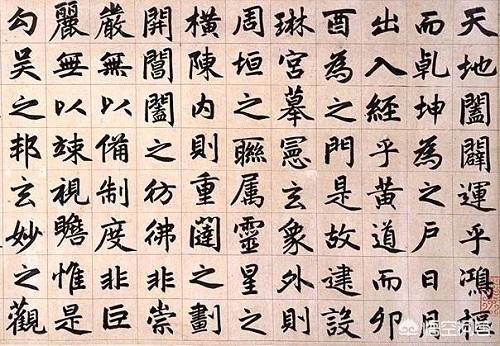 天地闔闢運乎鴻樞
而乹坤為之戶日月
出入經乎黃道而卯
酉為之門是故建設
琳宮摹憲玄象外則
周垣之聯属靈星之
橫陳內則重闥之劃
開閶闔之彷彿非崇
嚴無以備制度非巨
麗無以竦視瞻惟是
勾吴之邦玄妙之觀
悟空问答